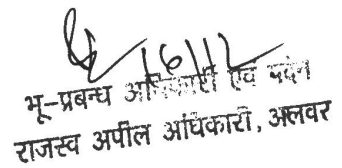 16/11/12
भू-प्रबन्ध अधिकारी एवं पदेन
राजस्व अपील अधिकारी, अलवर